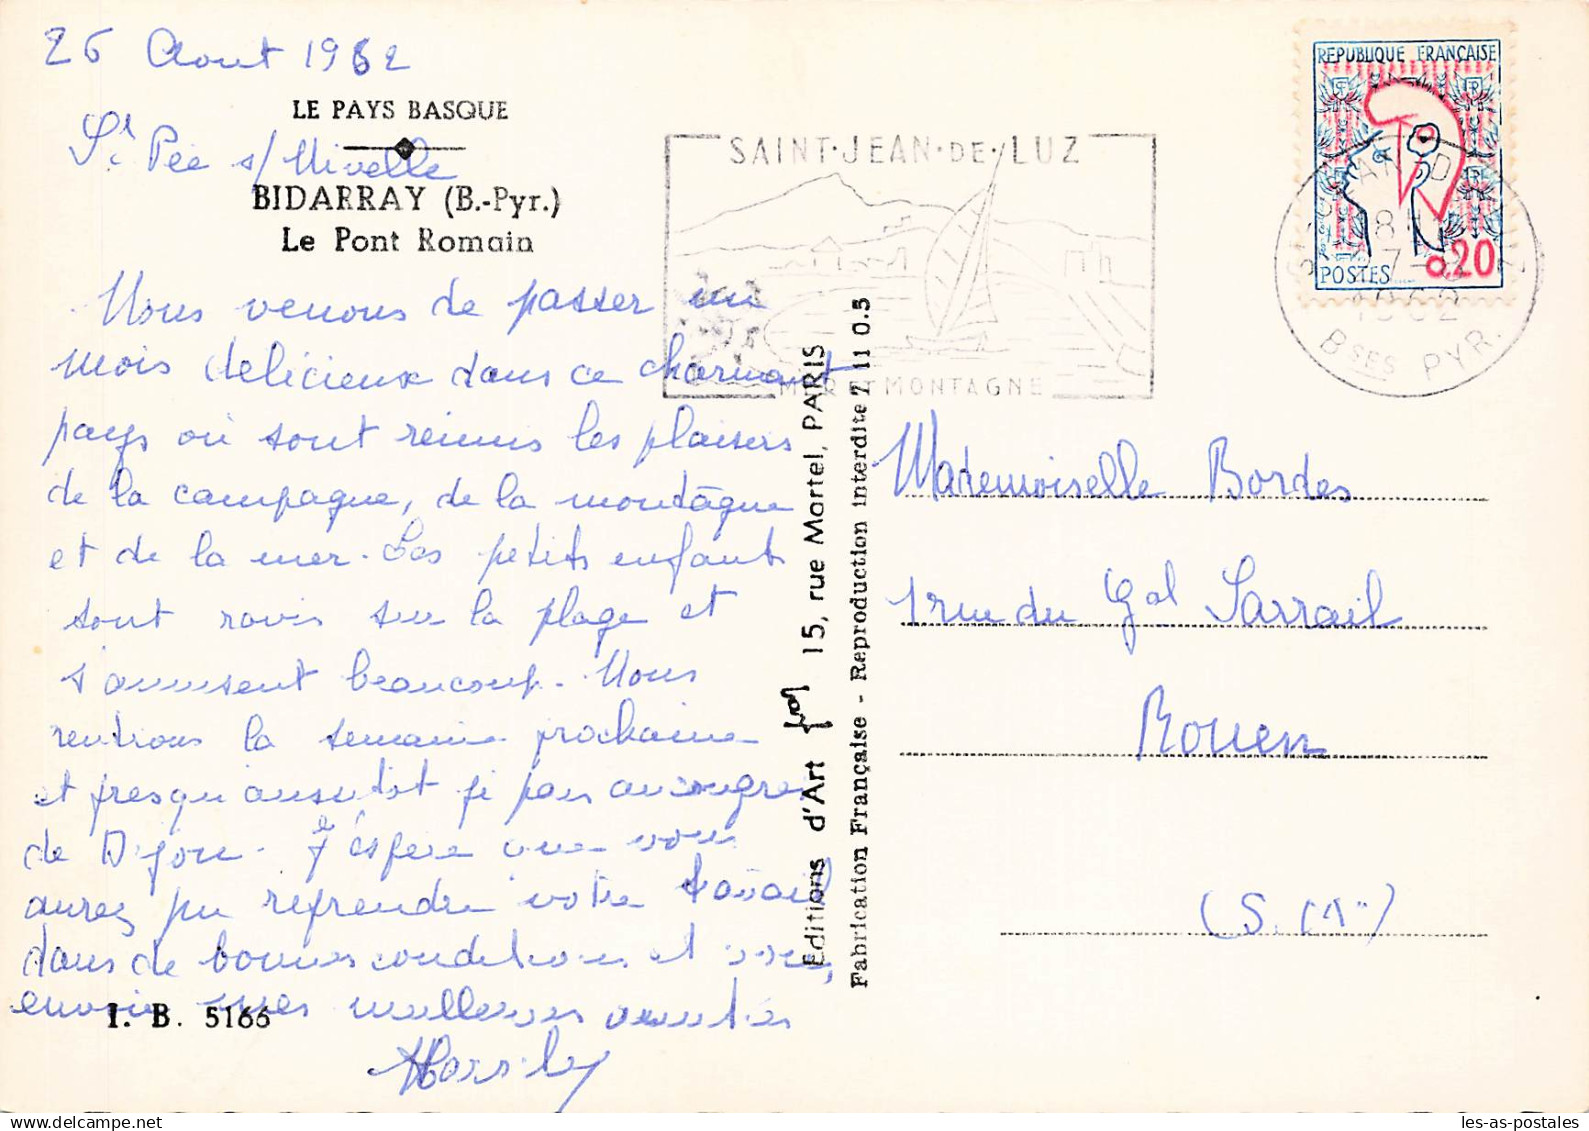 26 Aout 1962
LE PAYS BASQUE
St Pée s/ Nivelle
BIDARRAY (B.-Pyr.)
Le Pont Romain
Nous venons de passer un
mois délicieux dans ce charmant
pays où sont réunis les plaisirs
de la campagne, de la montagne
et de la mer. Les petits enfants
sont ravis sur la plage et
s'amusent beaucoup. Nous
rentrons la semaine prochaine
et presqu'aussitôt je pars au congrès
de Dijon. J'espère que vous
aurez pu reprendre votre travail
dans de bonnes conditions et vous
envoie mes meilleures amitiés
I. B. 5166
SAINT·JEAN·DE·LUZ
MER ET MONTAGNE
REPUBLIQUE FRANÇAISE
POSTES
0,20
1962
BSES PYR.
Editions d'Art 15, rue Martel, PARIS
Fabrication Française - Reproduction interdite 7 11 0.3
Mademoiselle Bordes
1 rue du Gal Sarrail
Rouen
(S. Me)
les-as-postales